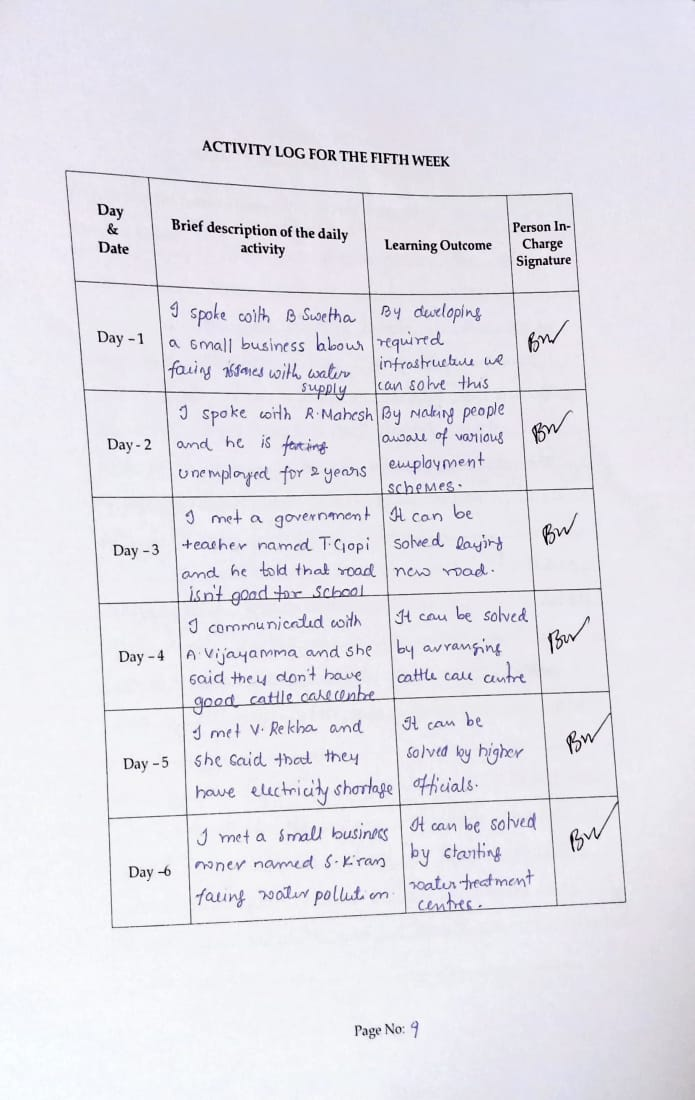 ACTIVITY LOG FOR THE FIFTH WEEK
Day
&
Date
Brief description of the daily
activity
Learning Outcome
Person In-
Charge
Signature
Day - 1
I spoke with B Swetha
a small business labour
facing issues with water
supply
By developing
required
infrastructure we
can solve this
Day - 2
I spoke with R. Mahesh
and he is facing
unemployed for 2 years
By Making people
aware of various
employment
schemes.
Day - 3
I met a government
teacher named T. Gopi
and he told that road
isn't good for School
It can be
solved laying
new road.
Day - 4
I communicated with
A. Vijayamma and she
said they don't have
good cattle care centre
It can be solved
by arranging
cattle care centre
Day - 5
I met V. Rekha and
she said that they
have electricity shortage
It can be
solved by higher
officials.
Day -6
I met a small business
owner named S. Kiran
facing water pollution
It can be solved
by starting
water treatment
centres.
Page No: 9